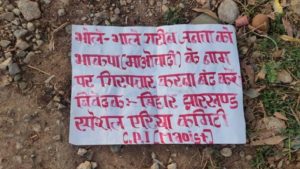 भोले-भाले गरीब जनता को
भाकपा(माओवादी) के नाम
पर गिरफ्तार करवा बंद करे
निवेदक:- बिहार झारखण्ड
स्पेशल एरिया कमिटी
C.P.I (Maoist)